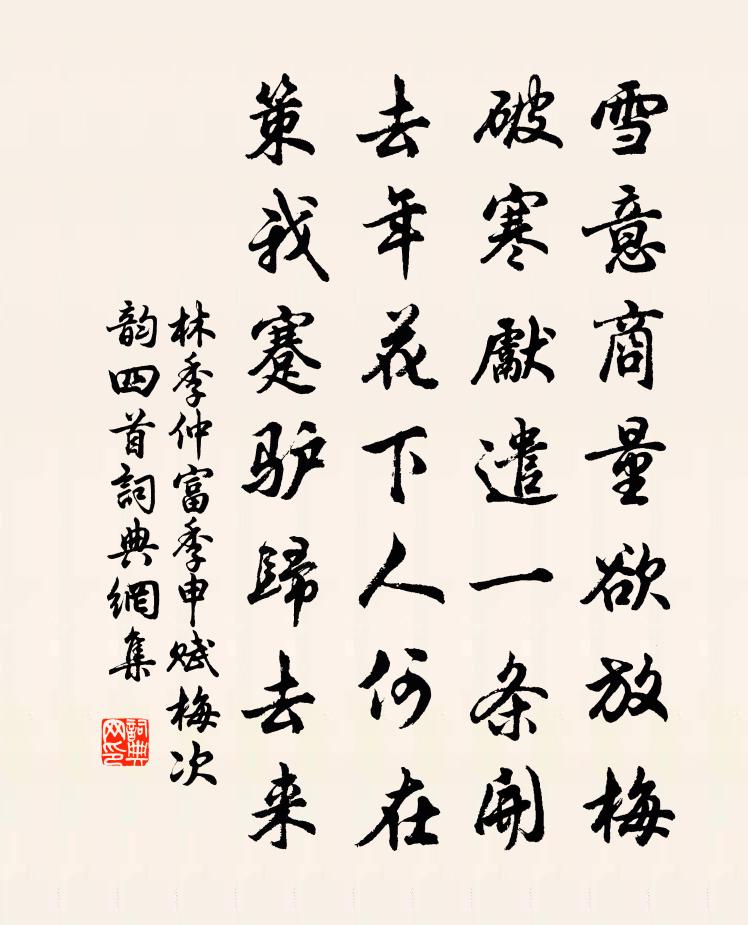 雪意商量欲放梅
破寒獻遣一条開
去年花下人何在
策我蹇驴歸去来
林季仲富季申赋梅次
韵四首詞典網集
詞典网印